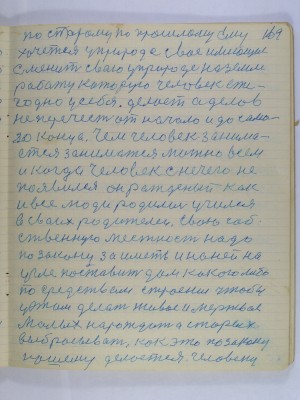 по старому по прошлому ему 169
хочется у природа свое имеющие
сменить свою у природе на земле
работу которую человек еже-
годно у себя. делает а делов
не перечест от начало и до само-
го конца. Чем человек занима-
ется заниматся можно всем
и когда человек с нечего не
появился он рожденый как
и все люди родился учился
в своих родителей, свою соб-
ственную местность надо
по закону заиметь и на ней на
угле поставит дом какого либо
по средствам строения чтобы
уждам делат живое и мертвое
малых нарождат а старых
выбрасыват, как это по закону
нашему делается. Человеку